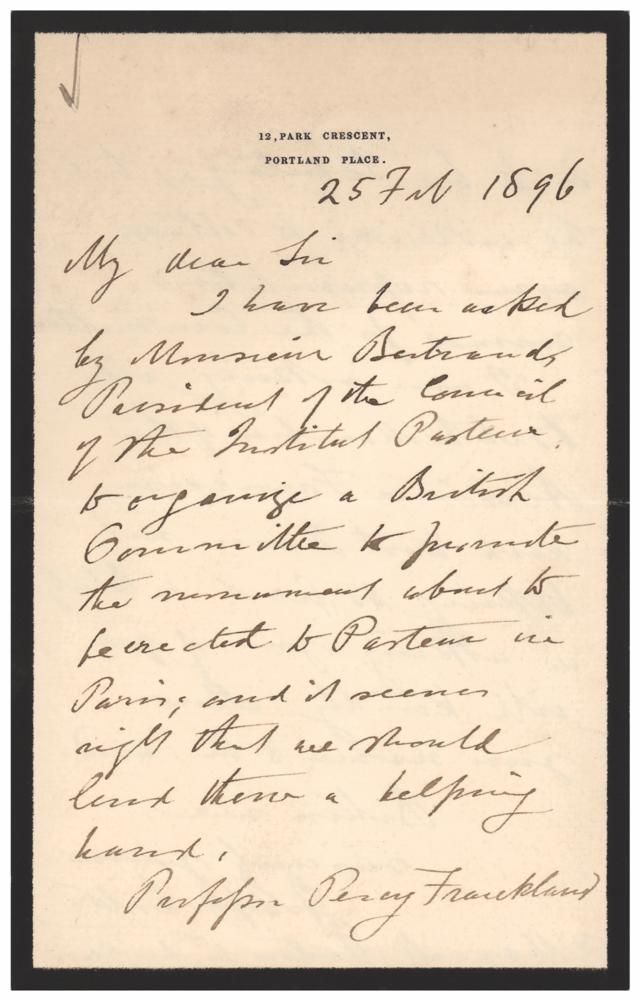 12, PARK CRESCENT,
PORTLAND PLACE.
25 Feb 1896
My dear Sir
I have been asked
by Monsieur Bertrand,
President of the Council
of the Institut Pasteur,
to organize a British
Committee to promote
the monument about to
be erected to Pasteur in
Paris; and it seems
right that we should
lend them a helping
hand.
Professor Percy Franckland